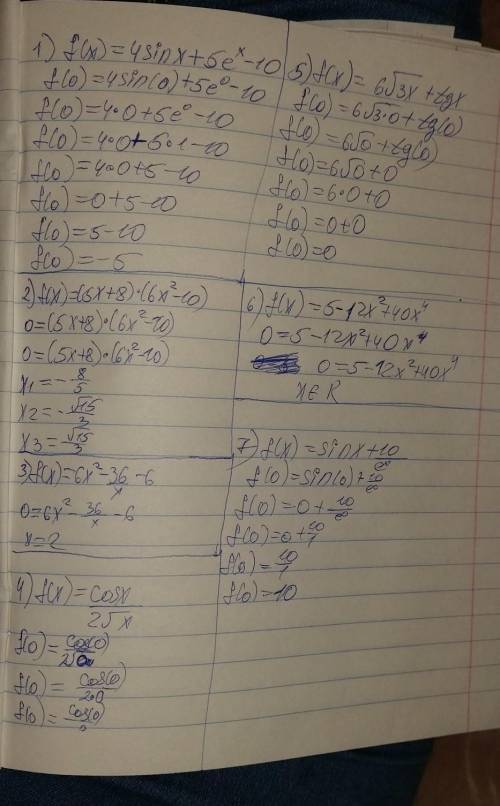 1) f(x)=4sinx+5e^x-10
f(0)=4sin(0)+5e^0-10
f(0)=4·0+5e^0-10
f(0)=4·0+5·1-10
f(0)=4·0+5-10
f(0)=0+5-10
f(0)=5-10
f(0)=-5
2) f(x)=(5x+8)·(6x²-10)
0=(5x+8)·(6x²-10)
0=(5x+8)·(6x²-10)
x1=-8/5
x2=-√15/3
x3=√15/3
3) f(x)=6x²-36/x-6
0=6x²-36/x-6
x=2
4) f(x)=cosx/2√x
f(0)=cos(0)/2√0
f(0)=cos(0)/2·0
f(0)=cos(0)/
5) f(x)=6√3x+tgx
f(0)=6√3·0+tg(0)
f(0)=6√0+tg(0)
f(0)=6√0+0
f(0)=6·0+0
f(0)=0+0
f(0)=0
6) f(x)=5-12x²+40x⁴
0=5-12x²+40x⁴
0=5-12x²+40x⁴
x∈R
7) f(x)=sinx+10/
f(0)=sin(0)+10/
f(0)=0+10/
f(0)=0+10/1
f(0)=10/1
f(0)=10